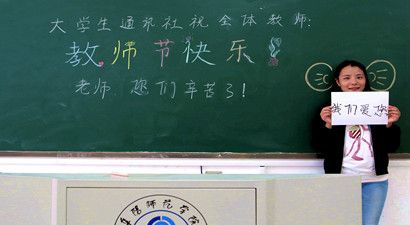 大学生通讯社祝全体教师:
教师节快乐!
老师 您们辛苦了!
我们爱您
师范学院